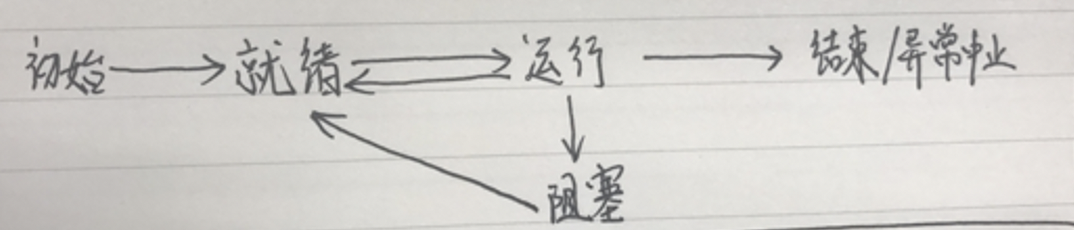 初始 就绪 运行 结束/异常中止
阻塞